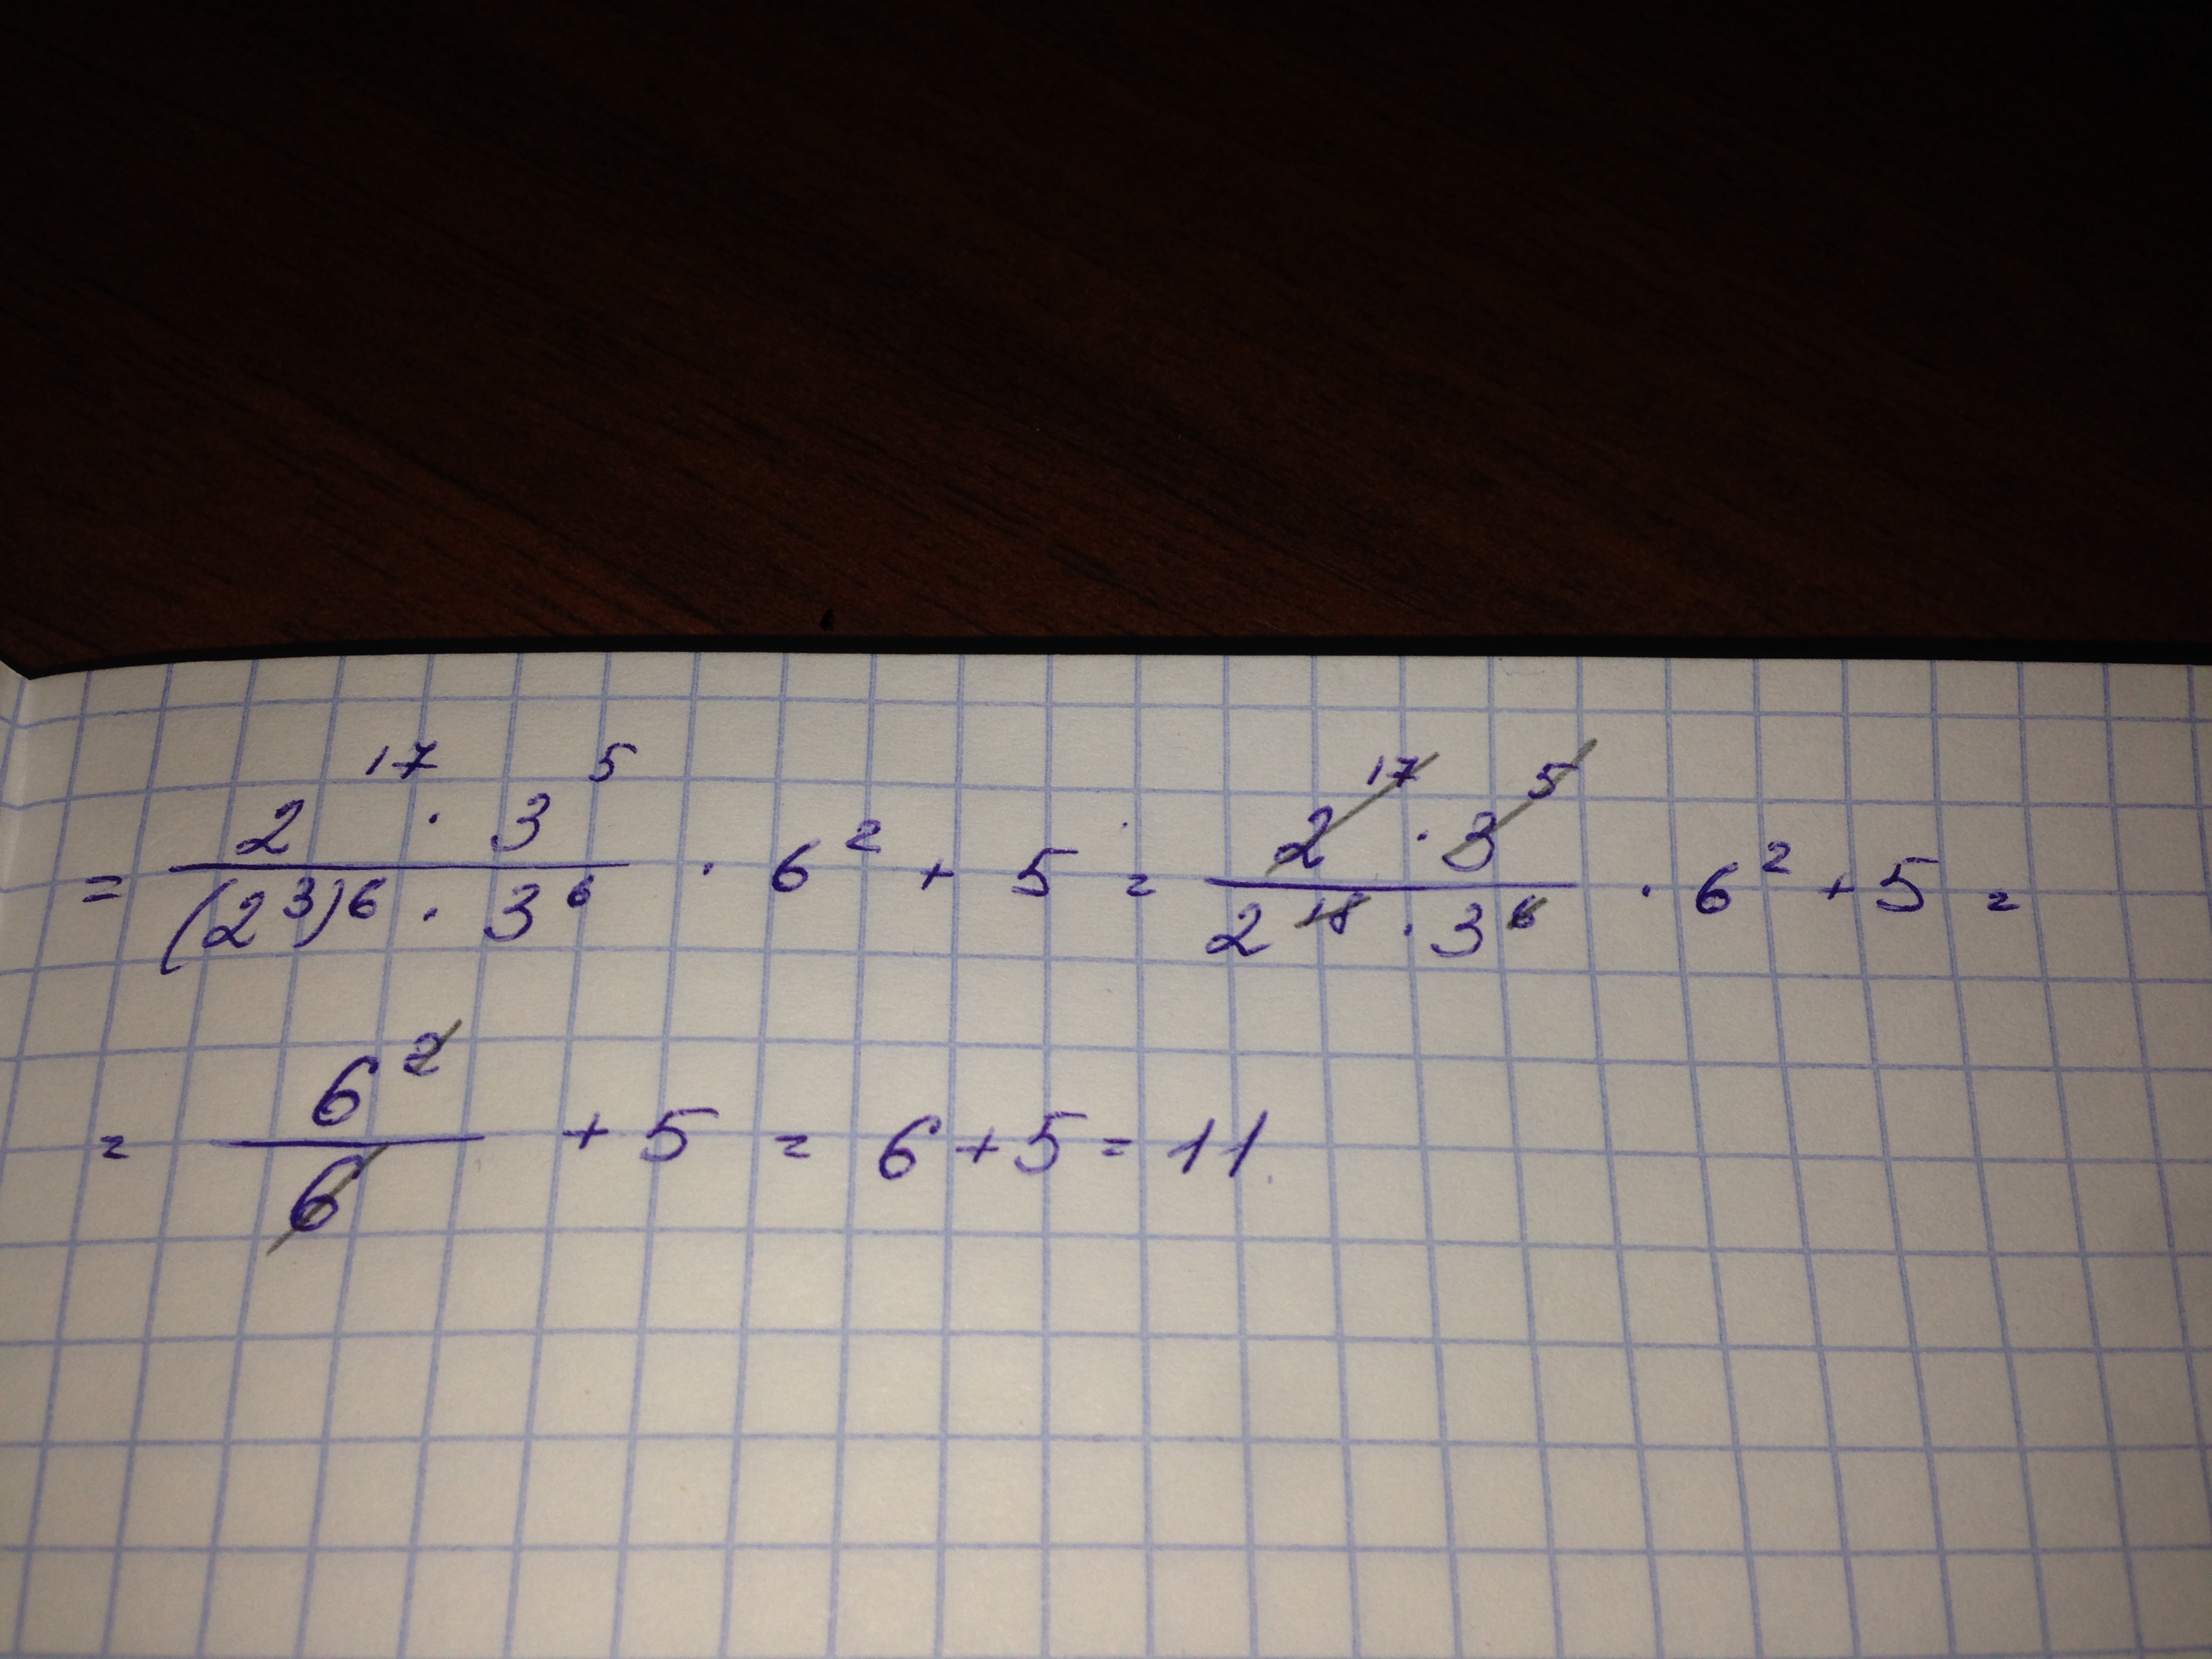 = 2^17 · 3^5 / (2^3)^6 · 3^6 · 6^2 + 5 = 2^17 · 3^5 / 2^18 · 3^6 · 6^2 + 5 =
= 6^2 / 6 + 5 = 6 + 5 = 11